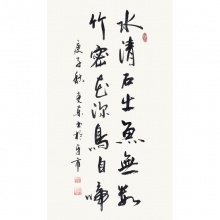 水清石出魚無數
竹密花深鳥自啼
庚子秋